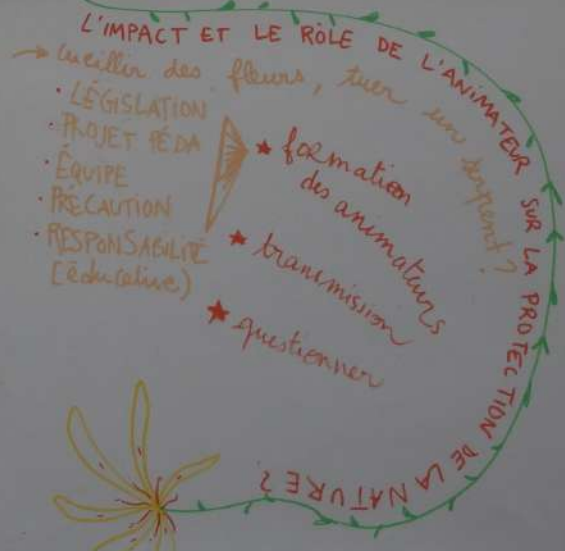 L'IMPACT ET LE RÔLE DE L'ANIMATEUR SUR LA PROTECTION DE LA NATURE ?
→ Cueillir des fleurs, tuer un serpent ?
• LÉGISLATION
• PROJET PÉDA
• ÉQUIPE
• PRÉCAUTION
• RESPONSABILITÉ
(éducative)
★ formation
des animateurs
★ transmission
★ questionner